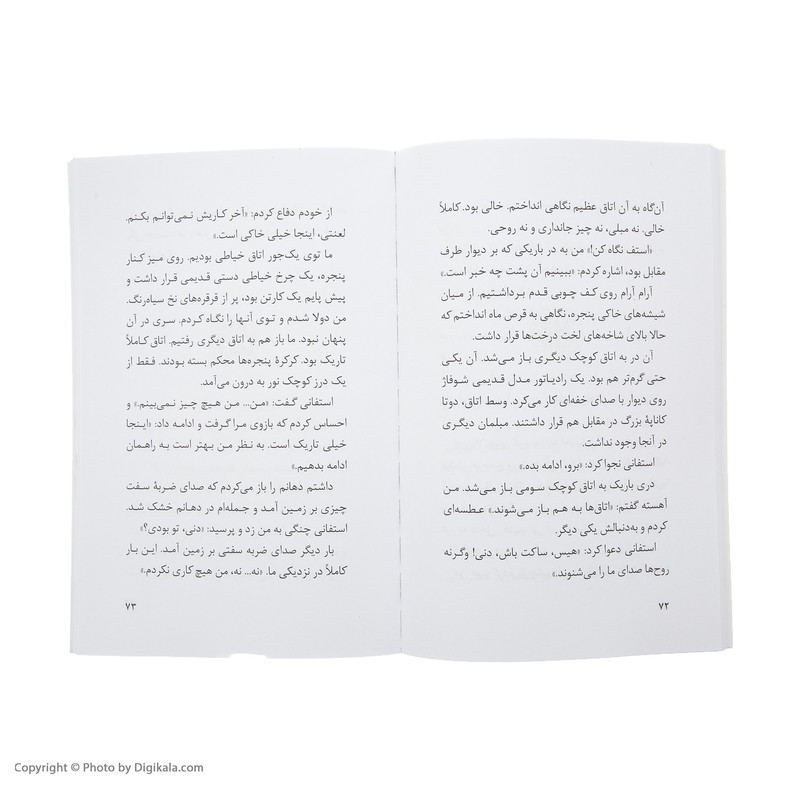 آن‌گاه به آن اتاق عظیم نگاهی انداختم. خالی بود. کاملاً
خالی. نه مبلی، نه چیز جانداری و نه روحی.
«استف نگاه کن!» من به در باریکی که بر دیوار طرف
مقابل بود، اشاره کردم: «ببینیم آن پشت چه خبر است.»
آرام آرام روی کف چوبی قدم برداشتیم. از میان
شیشه‌های خاکی پنجره، نگاهی به قرص ماه انداختم که
حالا بالای شاخه‌های لخت درخت‌ها قرار داشت.
آن در به اتاق کوچک دیگری باز می‌شد. آن یکی
حتی گرم‌تر هم بود. یک رادیاتور مدل قدیمی شوفاژ
روی دیوار با صدای خفه‌ای کار می‌کرد. وسط اتاق، دوتا
کاناپهٔ بزرگ در مقابل هم قرار داشتند. مبلمان دیگری
در آنجا وجود نداشت.
استفانی نجوا کرد: «برو، ادامه بده.»
دری باریک به اتاق کوچک سومی باز می‌شد. من
آهسته گفتم: «اتاق‌ها به هم باز می‌شوند.» عطسه‌ای
کردم و به‌دنبالش یکی دیگر.
استفانی دعوا کرد: «هیس، ساکت باش، دنی! وگرنه
روح‌ها صدای ما را می‌شنوند.»
۷۲
از خودم دفاع کردم: «آخر کاریش نمی‌توانم بکنم.
لعنتی، اینجا خیلی خاکی است.»
ما توی یک‌جور اتاق خیاطی بودیم. روی میز کنار
پنجره، یک چرخ خیاطی دستی قدیمی قرار داشت و
پیش پایم یک کارتن بود، پر از قرقره‌های نخ سیاه‌رنگ.
من دولا شدم و توی آنها را نگاه کردم. سری در آن
پنهان نبود. ما باز هم به اتاق دیگری رفتیم. اتاق کاملاً
تاریک بود. کرکرهٔ پنجره‌ها محکم بسته بودند. فقط از
یک درز کوچک نور به درون می‌آمد.
استفانی گفت: «من... من هیچ چیز نمی‌بینم.» و
احساس کردم که بازوی مرا گرفت و ادامه داد: «اینجا
خیلی تاریک است. به نظر من بهتر است به راهمان
ادامه بدهیم.»
داشتم دهانم را باز می‌کردم که صدای ضربهٔ سفت
چیزی بر زمین آمد و جمله‌ام در دهانم خشک شد.
استفانی چنگی به من زد و پرسید: «دنی، تو بودی؟»
بار دیگر صدای ضربه سفتی بر زمین آمد. این بار
کاملاً در نزدیکی ما. «نه... نه، من هیچ کاری نکردم.»
۷۳
Copyright © Photo by Digikala.com